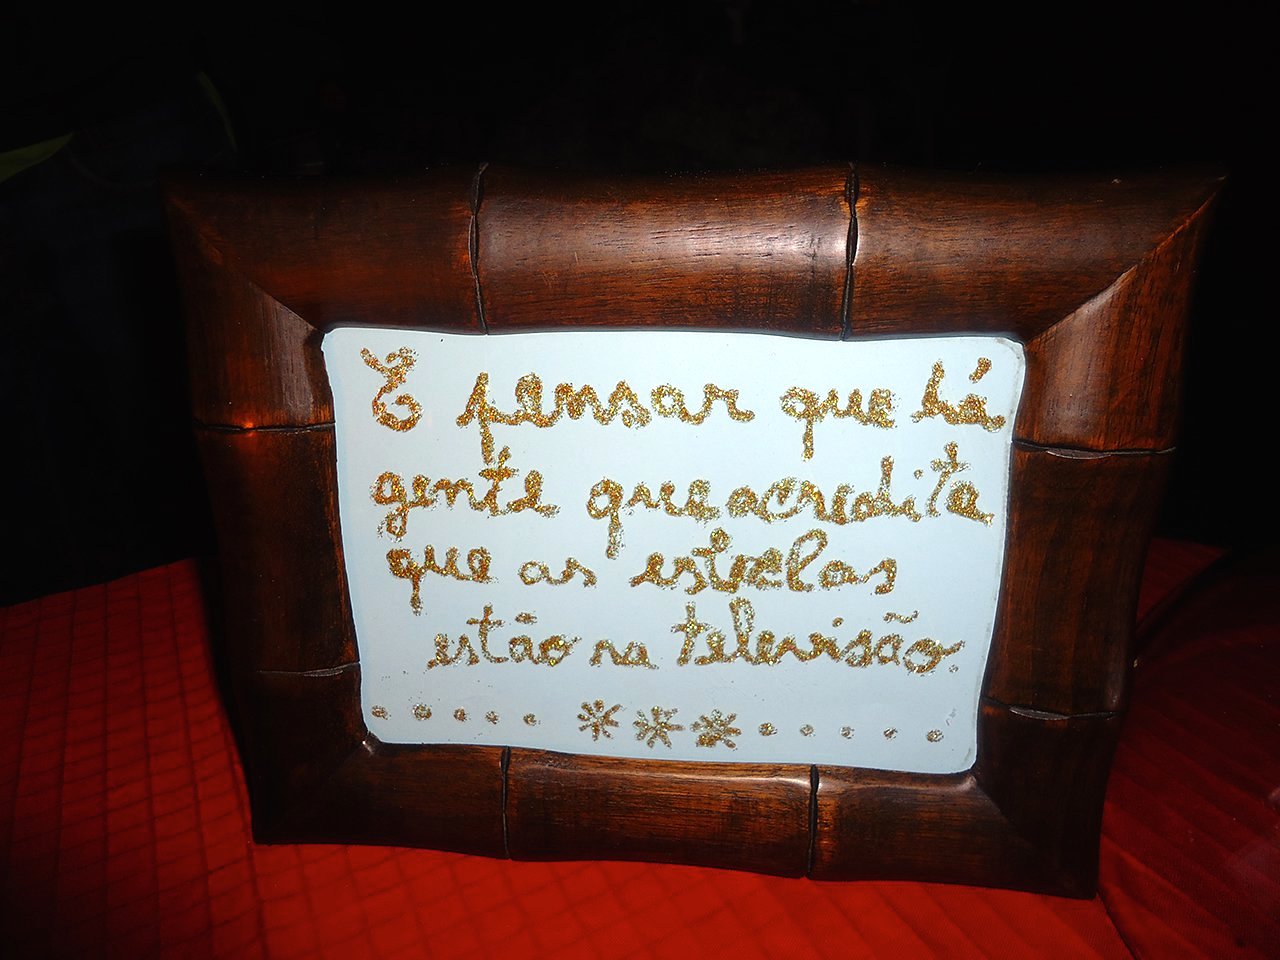 E pensar que há
gente que acredita
que as estrelas
estão na televisão.